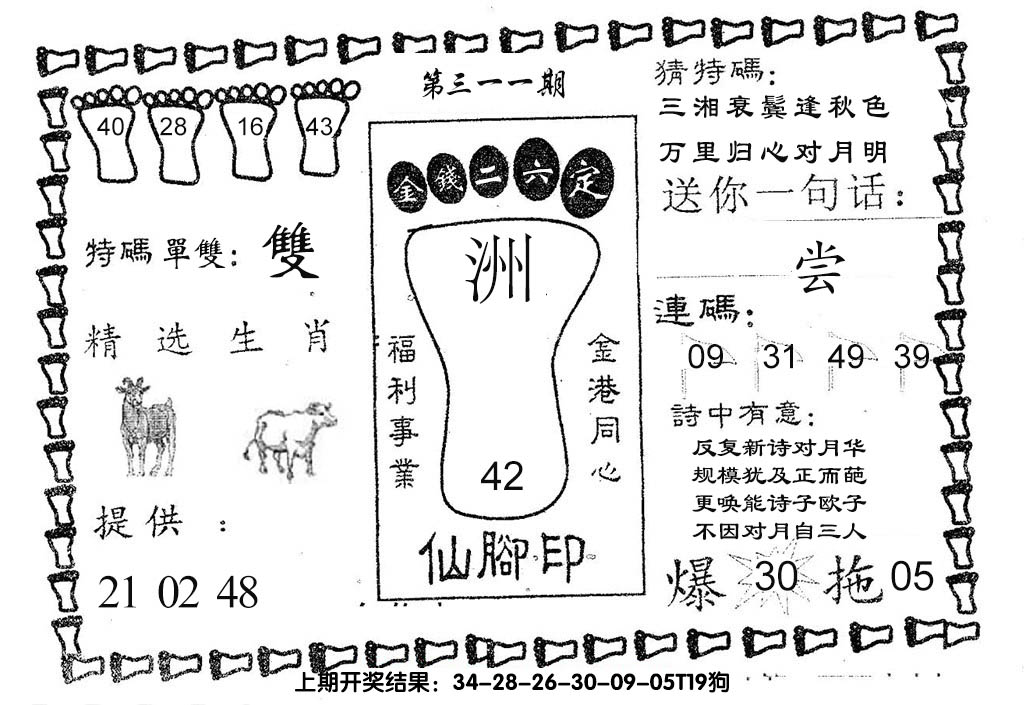 第三一一期
40 28 16 43
特碼單雙：雙
精选生肖
提供：
21 02 48
金錢二六定
洲
42
福利事業
金港同心
仙腳印
猜特碼：
三湘衰鬓逢秋色
万里归心对月明
送你一句话：
尝
連碼：
09 31 49 39
詩中有意：
反复新诗对月华
规模犹及正而葩
更唤能诗子欧子
不因对月自三人
爆 30 拖 05
上期开奖结果：34-28-26-30-09-05T19狗